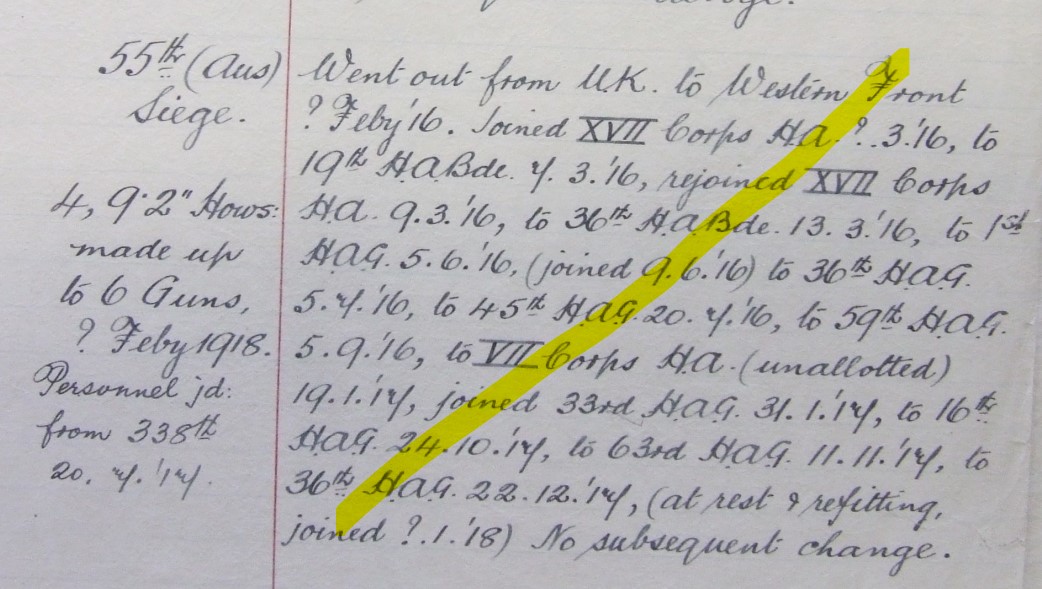 55th (Aus)
Siege.
4, 9·2" Hows:
made up
to 6 Guns,
? Feby 1918.
Personnel jd:
from 338th
20. 7. '17.
Went out from U.K. to Western Front
? Feby '16. Joined XVII Corps H.A. ?. 3.'16, to
19th H.A.Bde. 7. 3.'16, rejoined XVII Corps
H.A. 9.3.'16, to 36th H.A.Bde. 13. 3.'16, to 1st
H.A.G. 5.6.'16, (joined 9.6.'16) to 36th H.A.G.
5.7.'16, to 45th H.A.G. 20.7.'16, to 59th H.A.G.
5.9.'16, to VII Corps H.A. (unallotted)
19.1.'17, joined 33rd H.A.G. 31.1.'17, to 16th
H.A.G. 24.10.'17, to 63rd H.A.G. 11.11.'17, to
36th H.A.G. 22.12.'17, (at rest & refitting,
joined ?.1.'18) No subsequent change.